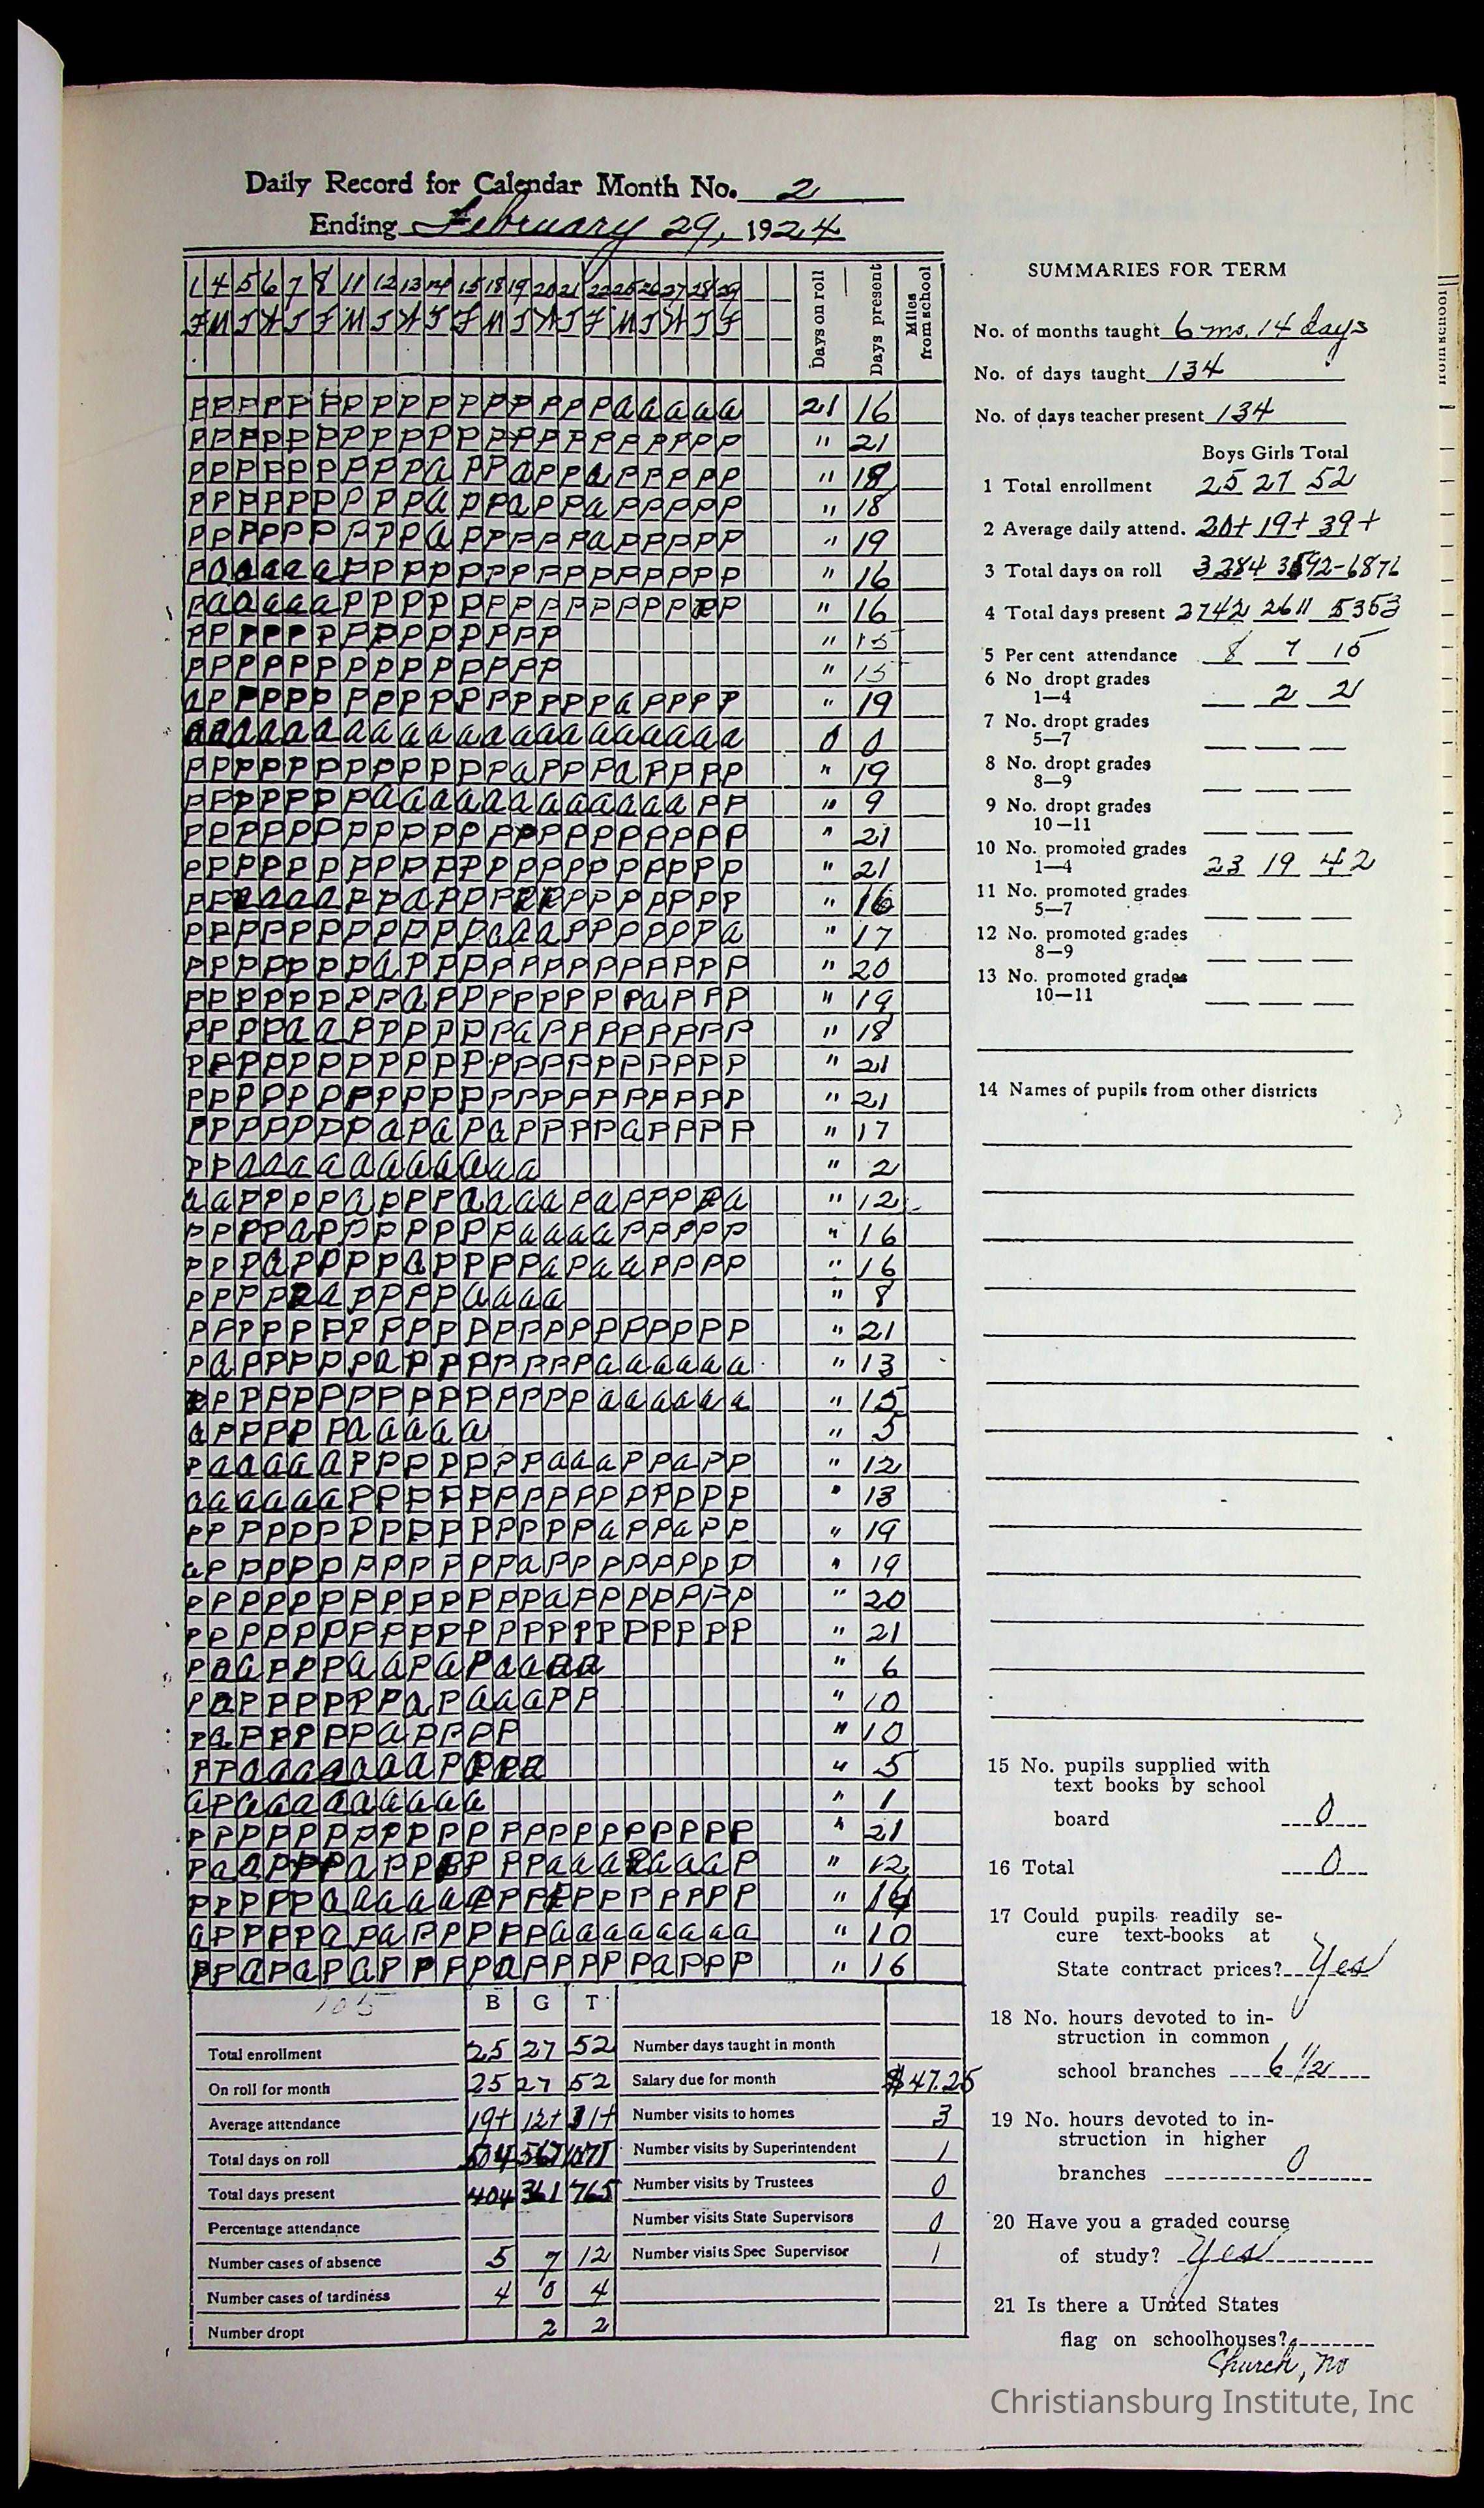 Daily Record for Calendar Month No. 2
Ending February 29, 1924
1 4 5 6 7 8 11 12 13 14 15 18 19 20 21 22 25 26 27 28 29 Days on roll Days present Miles from school
F M T W T F M T W T F M T W T F M T W T F
P P P P P P P P P P P P P P P P a a a a a 21 16
P P P P P P P P P P P P P P P P P P P P P " 21
P P P P P P P P P a P P a P P a P P P P P " 18
P P P P P P P P P a P P a P P a P P P P P " 18
P P P P P P P P P a P P P P P a P P P P P " 19
P a a a a a P P P P P P P P P P P P P P P " 16
P a a a a a P P P P P P P P P P P P P P P " 16
P P P P P P P P P P P P P P P " 15
P P P P P P P P P P P P P P P " 15
a P P P P P P P P P P P P P P P a P P P P " 19
a a a a a a a a a a a a a a a a a a a a a 0 0
P P P P P P P P P P P P a P P P a P P P P " 19
P P P P P P P a a a a a a a a a a a a P P " 9
P P P P P P P P P P P P P P P P P P P P P " 21
P P P P P P P P P P P P P P P P P P P P P " 21
P P a a a a P P a P P P P P P P P P P P P " 16
P P P P P P P P P P P a a a P P P P P P a " 17
P P P P P P P a P P P P P P P P P P P P P " 20
P P P P P P P P a P P P P P P P P a P P P " 19
P P P P a a P P P P P P a P P P P P P P P " 18
P P P P P P P P P P P P P P P P P P P P P " 21
P P P P P P P P P P P P P P P P P P P P P " 21
P P P P P P P a P a P a P P P P a P P P P " 17
P P a a a a a a a a a a a a " 2
a a P P P P a P P P a a a a P a P P P P a " 12
P P P P a P P P P P P P a a a a P P P P P " 16
P P P a P P P P a P P P P a P a a P P P P " 16
P P P P P a P P P P a a a a " 8
P P P P P P P P P P P P P P P P P P P P P " 21
P a P P P P P a P P P P P P P a a a a a a " 13
P P P P P P P P P P P P P P P a a a a a a " 15
a P P P P P a a a a a " 5
P a a a a a P P P P P P P a a a P P a P P " 12
a a a a a a P P P P P P P P P P P P P P P " 13
P P P P P P P P P P P P P P P a P P a P P " 19
a P P P P P P P P P P P a P P P P P P P P " 19
P P P P P P P P P P P P P a P P P P P P P " 20
P P P P P P P P P P P P P P P P P P P P P " 21
P a a P P P a a P a P a a a a " 6
P a P P P P P P a P a a a P P " 10
P a P P P P P a P P P P " 10
P P a a a a a a a P " 5
a P a a a a a a a a a " 1
P P P P P P P P P P P P P P P P P P P P P " 21
P a a P P P a P P P P P P a a a a a a P " 12
P P P P P a a a a a P P P P P P P P P P " 14
a P P P P a P a P P P P P a a a a a a a a " 10
P P a P a P a P P P P P a P P P P P a P P P " 16
105
B G T
Total enrollment 25 27 52 Number days taught in month
On roll for month 25 27 52 Salary due for month $47.25
Average attendance 19+ 12+ 31+ Number visits to homes 3
Total days on roll 504 567 1071 Number visits by Superintendent 1
Total days present 404 361 765 Number visits by Trustees 0
Percentage attendance Number visits State Supervisors 0
Number cases of absence 5 7 12 Number visits Spec Supervisor 1
Number cases of tardiness 4 0 4
Number dropt 2 2
SUMMARIES FOR TERM
No. of months taught 6 mo. 14 days
No. of days taught 134
No. of days teacher present 134
Boys Girls Total
1 Total enrollment 25 27 52
2 Average daily attend. 20+ 19+ 39+
3 Total days on roll 3284 3592-6876
4 Total days present 2742 2611 5353
5 Per cent attendance 8 7 15
6 No dropt grades
1—4 2 2
7 No. dropt grades
5—7
8 No. dropt grades
8—9
9 No. dropt grades
10—11
10 No. promoted grades
1—4 23 19 42
11 No. promoted grades
5—7
12 No. promoted grades
8—9
13 No. promoted grades
10—11
14 Names of pupils from other districts
15 No. pupils supplied with
text books by school
board 0
16 Total 0
17 Could pupils readily se-
cure text-books at
State contract prices? Yes
18 No. hours devoted to in-
struction in common
school branches 6 1/2
19 No. hours devoted to in-
struction in higher
branches 0
20 Have you a graded course
of study? Yes
21 Is there a United States
flag on schoolhouses?
Church, no
Christiansburg Institute, Inc